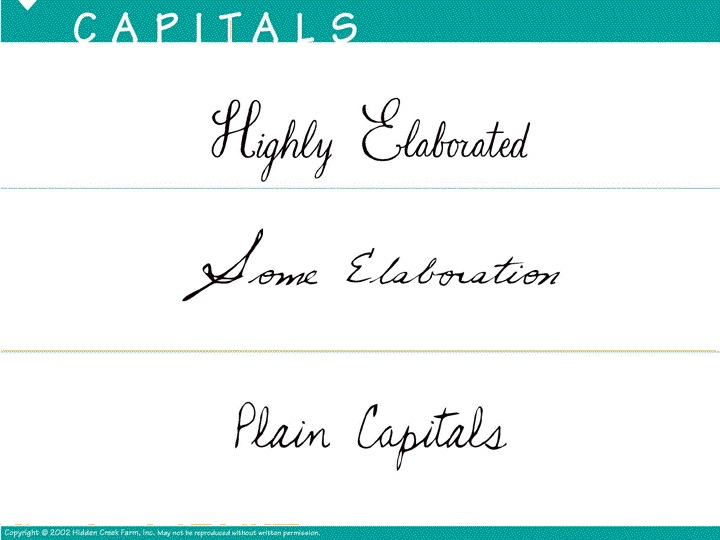 CAPITALS
Highly Elaborated
Some Elaboration
Plain Capitals
Copyright © 2002 Hidden Creek Farm, Inc. May not be reproduced without written permission.